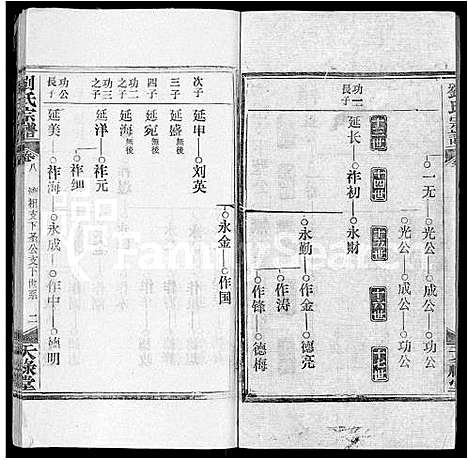 一无—光公—成公—功公
光公—成公—功公
十三世 十四世 十五世 十六世 十七世
功一長子 延长—祚初—永財
永勤—作金—德亮
作涛
作锋—德梅
永金—作国
次子 延申—刘英
三子 延盛 無後
四子 延宛 無後
功二之子 延海 無後
功三之子 延洋—祚元
祚细
功公長子 延美—祚海—永成—作中—德明
劉氏宗譜 卷八 湾祖支下圣公支下世系 二 天禄堂
FamilySearch